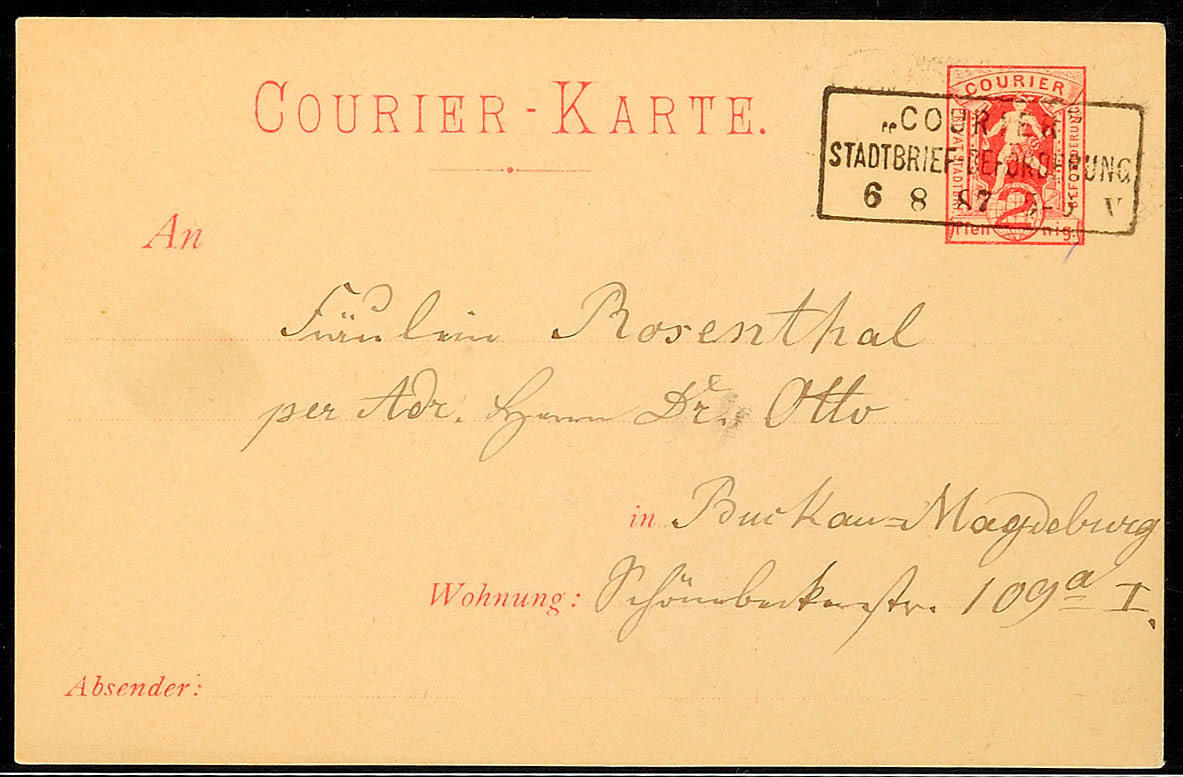 COURIER-KARTE.
COURIER
„COURIER"
STADTBRIEF-BEFÖRDERUNG
6 8 87 V
2
Pfennig.
An
Fräulein Rosenthal
per Adr. Herrn Dr. Otto
in Buckau-Magdeburg
Wohnung: Schönebeckerstr. 109a I.
Absender: